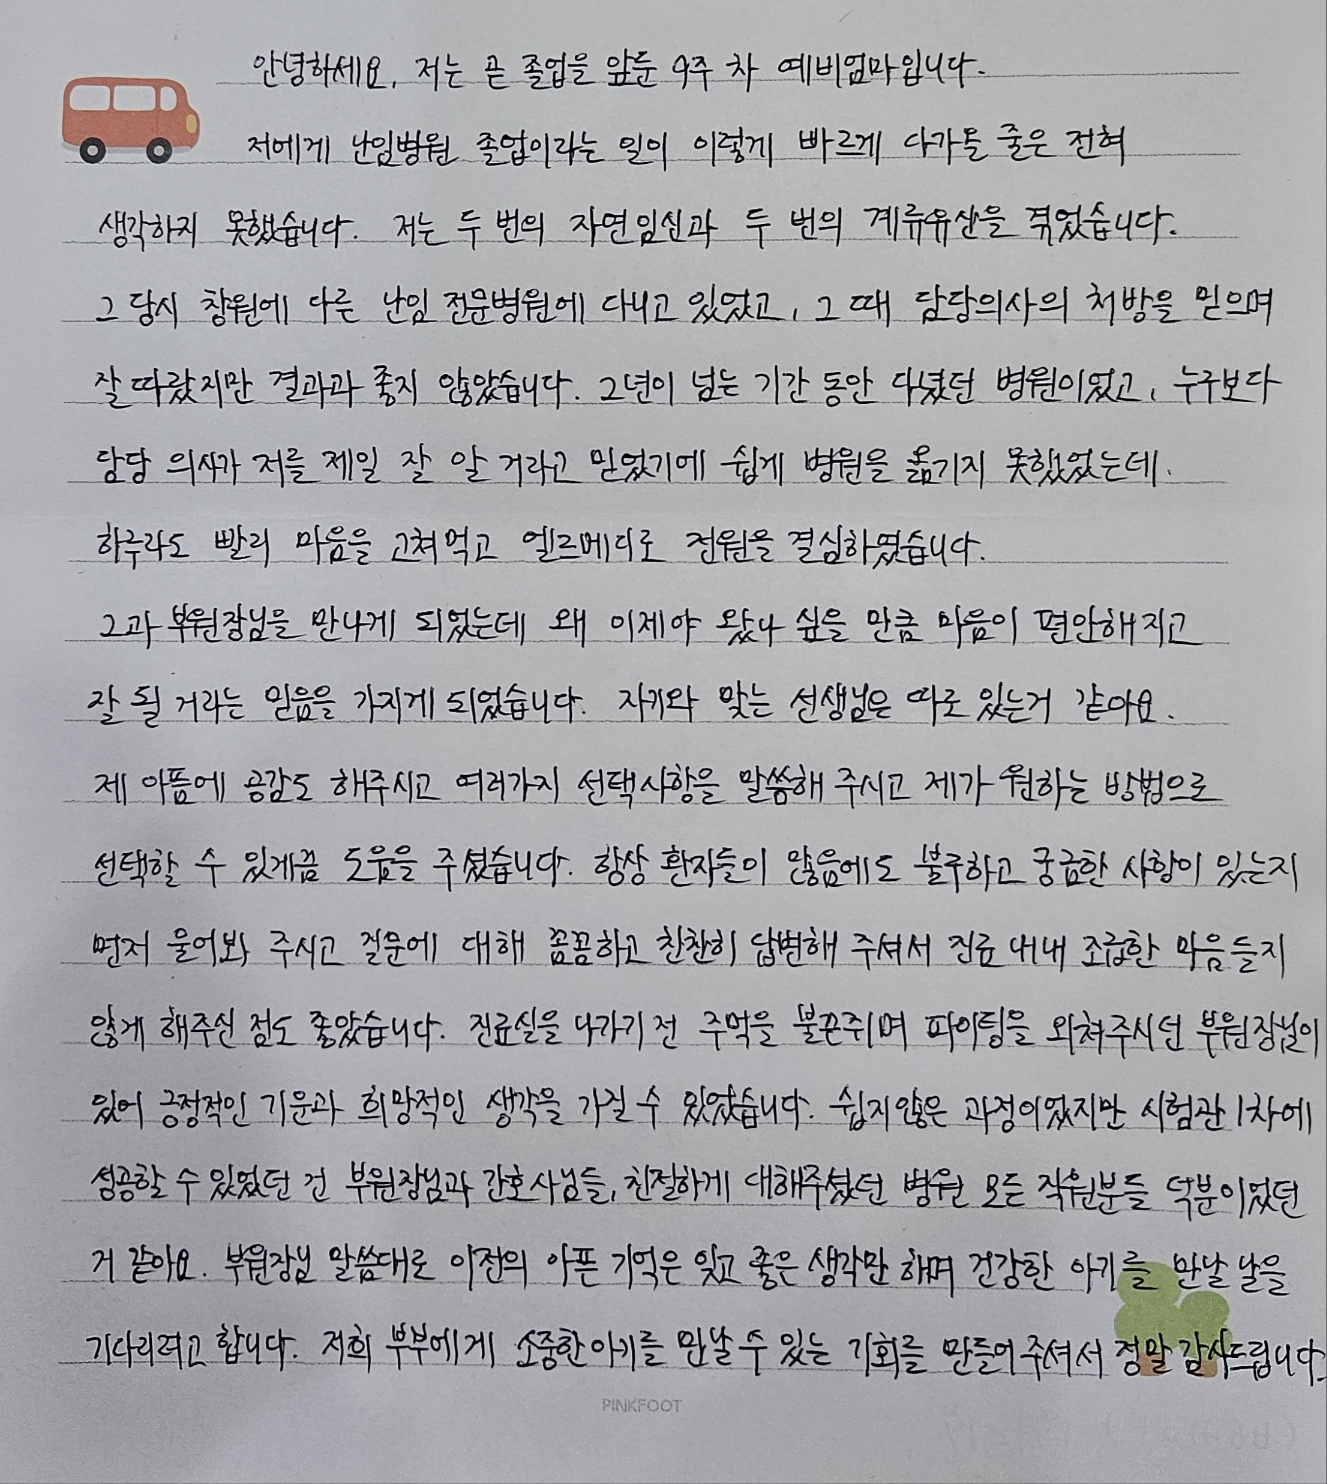 안녕하세요, 저는 곧 졸업을 앞둔 9주 차 예비엄마입니다.
저에게 난임병원 졸업이라는 일이 이렇게 빠르게 다가올 줄은 전혀
생각하지 못했습니다. 저는 두 번의 자연임신과 두 번의 계류유산을 겪었습니다.
그 당시 창원에 다른 난임 전문병원에 다니고 있었고, 그 때 담당의사의 처방을 믿으며
잘 따랐지만 결과과 좋지 않았습니다. 2년이 넘는 기간 동안 다녔던 병원이었고, 누구보다
담당 의사가 저를 제일 잘 알 거라고 믿었기에 쉽게 병원을 옮기지 못했었는데.
하루라도 빨리 마음을 고쳐먹고 엘르메디로 전원을 결심하였습니다.
그과 부원장님을 만나게 되었는데 왜 이제야 왔나 싶을 만큼 마음이 편안해지고
잘 될 거라는 믿음을 가지게 되었습니다. 자기와 맞는 선생님은 따로 있는거 같아요.
제 아픔에 공감도 해주시고 여러가지 선택사항을 말씀해 주시고 제가 원하는 방법으로
선택할 수 있게끔 도움을 주셨습니다. 항상 환자들이 많음에도 불구하고 궁금한 사항이 있는지
먼저 물어봐 주시고 질문에 대해 꼼꼼하고 친찬히 답변해 주셔서 진료 내내 조급한 마음들지
않게 해주신 점도 좋았습니다. 진료실을 나가기 전 주먹을 불끈쥐며 파이팅을 외쳐주시던 부원장님이
있어 긍정적인 기운과 희망적인 생각을 가질 수 있었습니다. 쉽지않은 과정이었지만 시험관 1차에
성공할 수 있었던 건 부원장님과 간호사님들, 친절하게 대해주셨던 병원 모든 직원분들 덕분이었던
거 같아요. 부원장님 말씀대로 이전의 아픈 기억은 잊고 좋은 생각만 하며 건강한 아기를 만날 날을
기다리려고 합니다. 저희 부부에게 소중한아기를 만날 수 있는 기회를 만들어 주셔서 정말 감사드립니다.
PINKFOOT